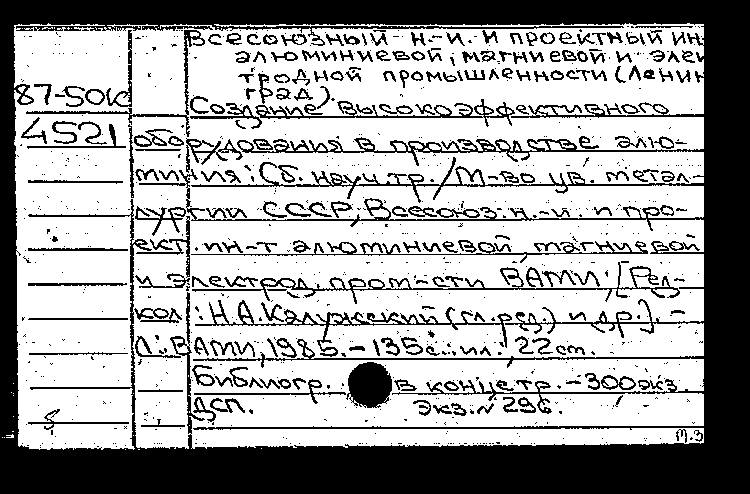 Всесоюзный н.-и. и проектный ин
алюминиевой, магниевой и элек
тродной промышленности (Ленин
град).
87-50к
Создание высокоэффективного
4521
оборудования в производстве алю-
миния: Сб. науч. тр. / М-во цв. метал-
лургии СССР, Всесоюз. н.-и. и про-
ект. ин-т алюминиевой, магниевой
и электрод. пром-сти ВАМИ; [Ред-
кол.: Н.А. Калужский (гл. ред.) и др.]. -
Л.: ВАМИ, 1985. - 135 с.: ил.; 22 см.
Библиогр. в конце тр. - 300 экз.
ДСП. Экз. № 296.
м.з